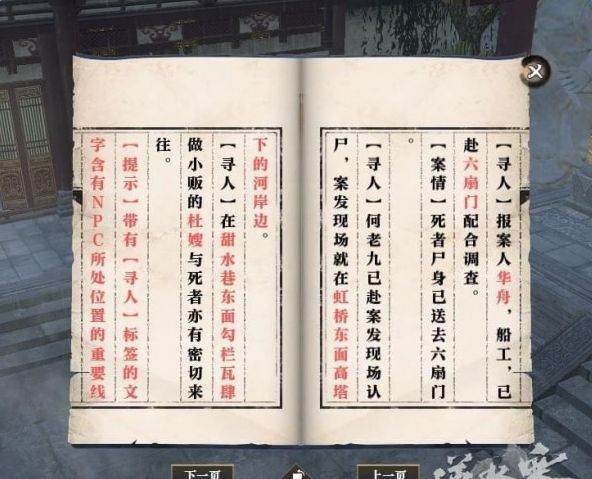 【寻人】报案人华舟，船工，已
赴六扇门配合调查。
【案情】死者尸身已送去六扇门
。
【寻人】何老九已赴案发现场认
尸，案发现场就在虹桥东面高塔
下的河岸边。
【寻人】在甜水巷东面勾栏瓦肆
做小贩的杜嫂与死者亦有密切来
往。
【提示】带有【寻人】标签的文
字含有NPC所处位置的重要线
下一页
上一页